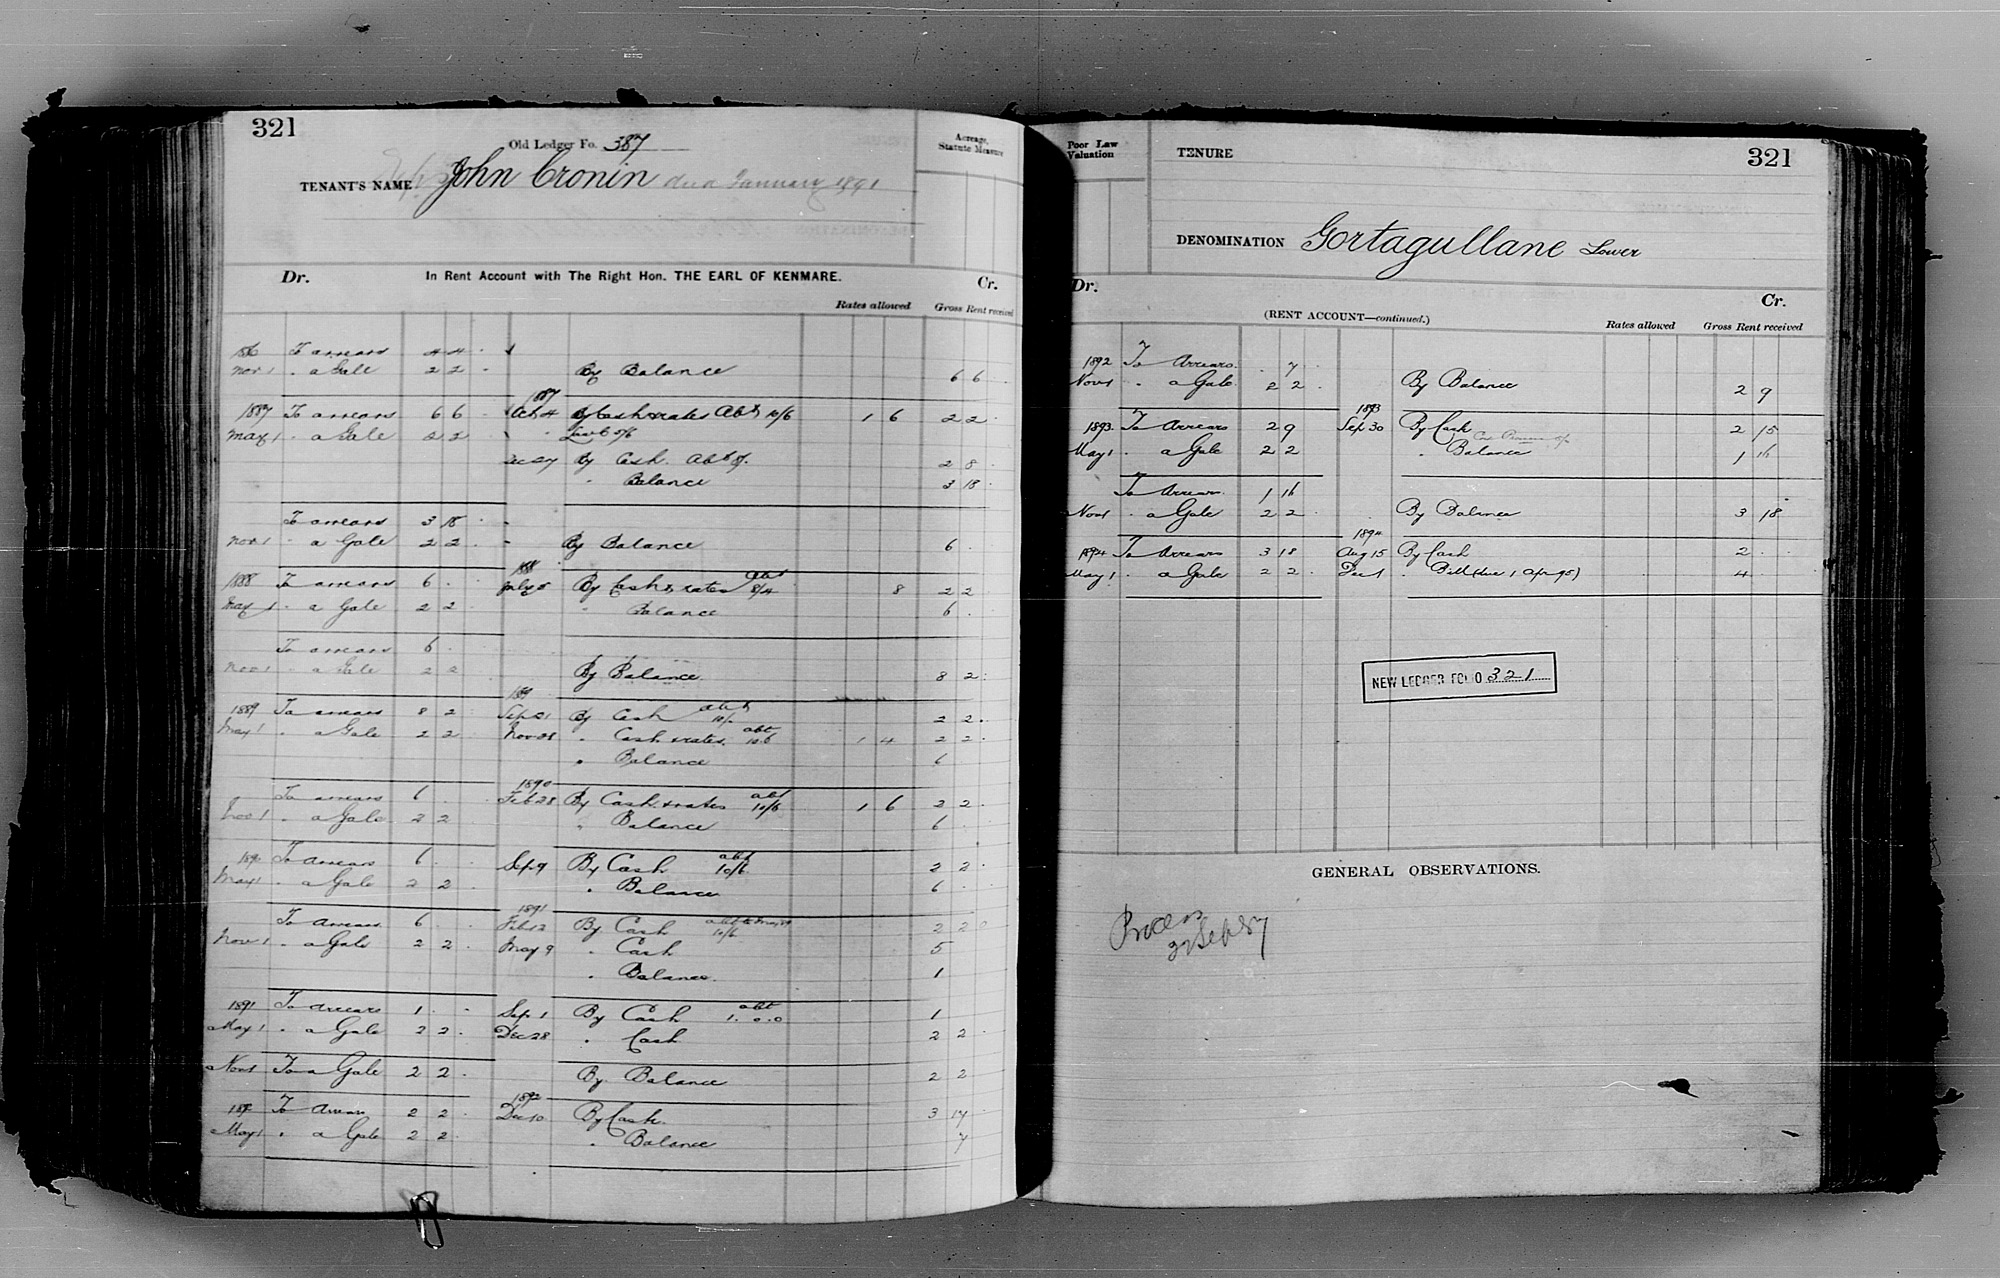 321
Old Ledger Fo. 387
Acreage, Statute Measure
TENANT'S NAME John Cronin died January 1891
Dr. In Rent Account with The Right Hon. THE EARL OF KENMARE. Cr.
Rates allowed Gross Rent received
1886 To arrears 4 4 .
Nov 1 . a Gale 2 2 . By Balance 6 6 .
1887
1887 To arrears 6 6 . Oct 4 By Cash & rates Abt 10/6 1 6 2 2 .
May 1 . a Gale 2 2 .
Dec 27 By Cash. Abt 2 8 .
" Balance 3 18 .
To arrears 3 18 .
Nov 1 " a Gale 2 2 . By Balance 6 .
1888
1888 To arrears 6 . July 5 By Cash & rates abt 8/4 8 2 2
May 1 . a Gale 2 2 . " Balance 6 .
To arrears 6
Nov 1 . a Gale 2 2 By Balance 8 2 .
1889
1889 To arrears 8 2 Sep 21 By Cash abt 10/. 2 2 .
May 1 " a Gale 2 2 Nov 28 " Cash & rates abt 10.6 1 4 2 2 .
" Balance 6
1890
To arrears 6 . Feb 28 By Cash & rates abt 10/6 1 6 2 2 .
Nov 1 . a Gale 2 2 " Balance 6 .
1890 To arrears 6 . Sep 9 By Cash abt 10/6 2 2 .
May 1 . a Gale 2 2 " Balance 6 .
1891
To arrears 6 . Feb 12 By Cash 10/6 2 2 0
Nov 1 . a Gale 2 2 . May 9 " Cash 5
" Balance 1
1891 To arrears 1 . . Sep 1 By Cash abt 1.0.0 1
May 1 . a Gale 2 2 . Dec 28 " Cash 2 2 .
Nov 1 To a Gale 2 2 . By Balance 2 2
1892
189 To Arrears 2 2 Dec 10 By Cash 3 17
May 1 " a Gale 2 2 " Balance 7
Poor Law Valuation
TENURE 321
DENOMINATION Gortagullane Lower
Dr. Cr.
(RENT ACCOUNT—continued.) Rates allowed Gross Rent received
1892 To Arrears . 7 .
Nov 1 " a Gale 2 2 . By Balance 2 9
1893
1893 To Arrears 2 9 Sep 30 By Cash 2 15
May 1 . a Gale 2 2 " Balance 1 16
To Arrears 1 16
Nov 1 . a Gale 2 2 . By Balance 3 18
1894
1894 To Arrears 3 18 Aug 15 By Cash 2 . .
May 1 . a Gale 2 2 . Dec 1 . Bill (due 1 Apr 95) 4 .
NEW LEDGER FOLIO 321
GENERAL OBSERVATIONS.
Process
27 Sep 87